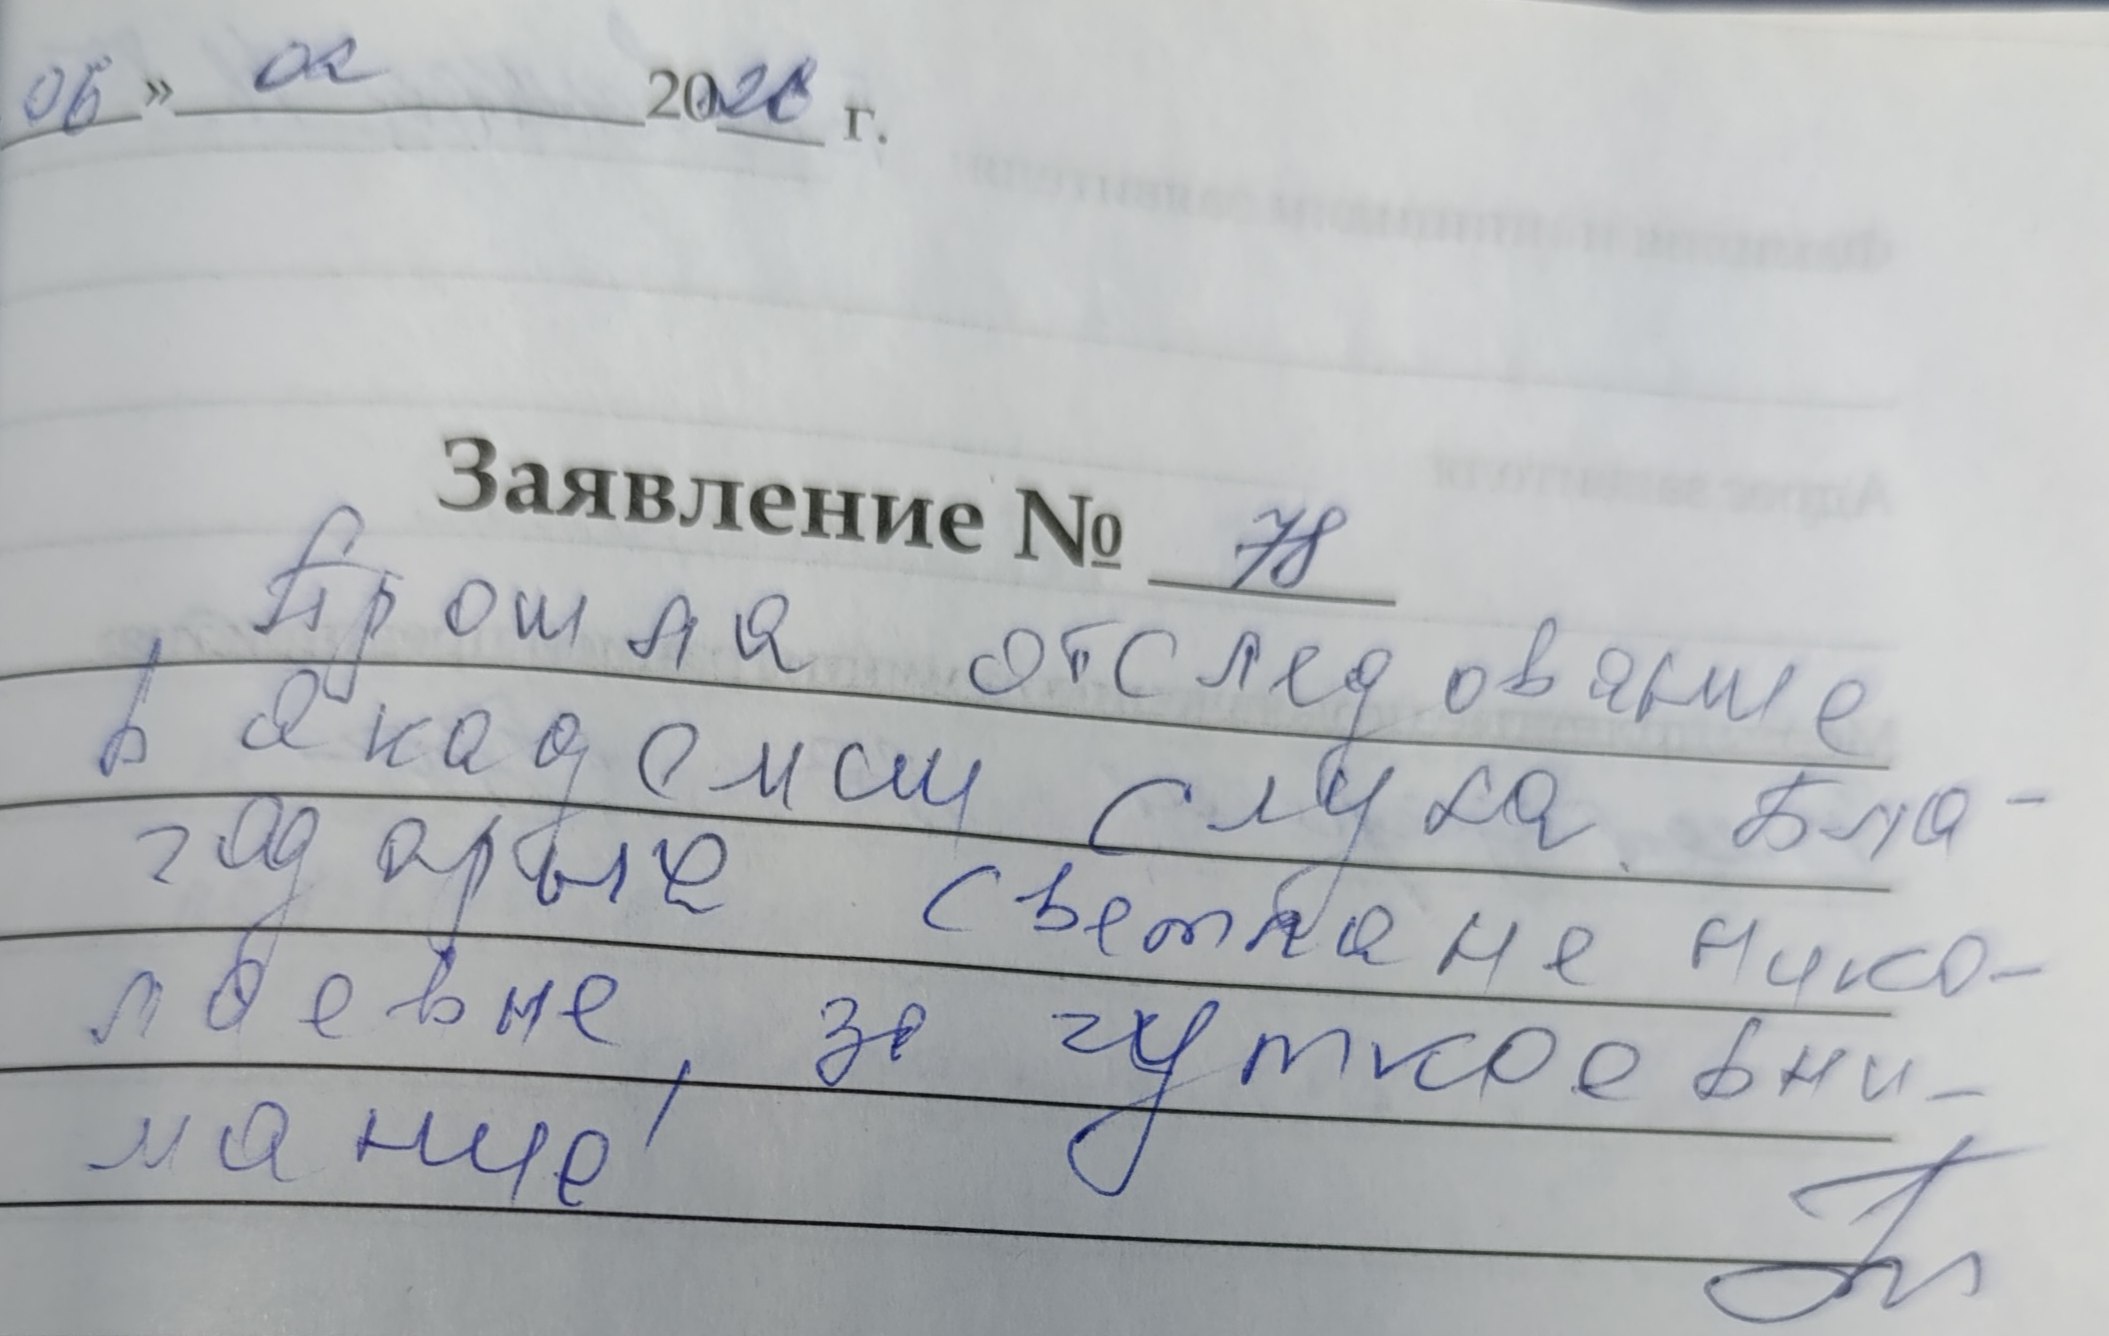 06 » 02 2026 г.
Заявление № 78
Прошла отследование
в академии слуха. Бла-
годарю Светлане Нико-
лаевне, за чуткое вни-
мание!